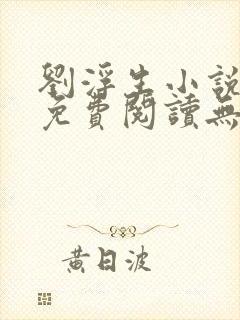 劉浮生小說
免費閱讀無
黃日波